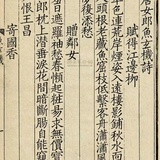 女郎魚玄機詩
賦得江邊柳
色連荒岸煙姿入遠樓影鋪秋水面
頭根老藏魚窟枝低繫客舟蕭蕭風
復添愁
贈鄰女
日遮羅袖愁春懶起粧易求無價寶
郎枕上潛垂淚花間暗斷腸自能窺
恨王昌
寄國香